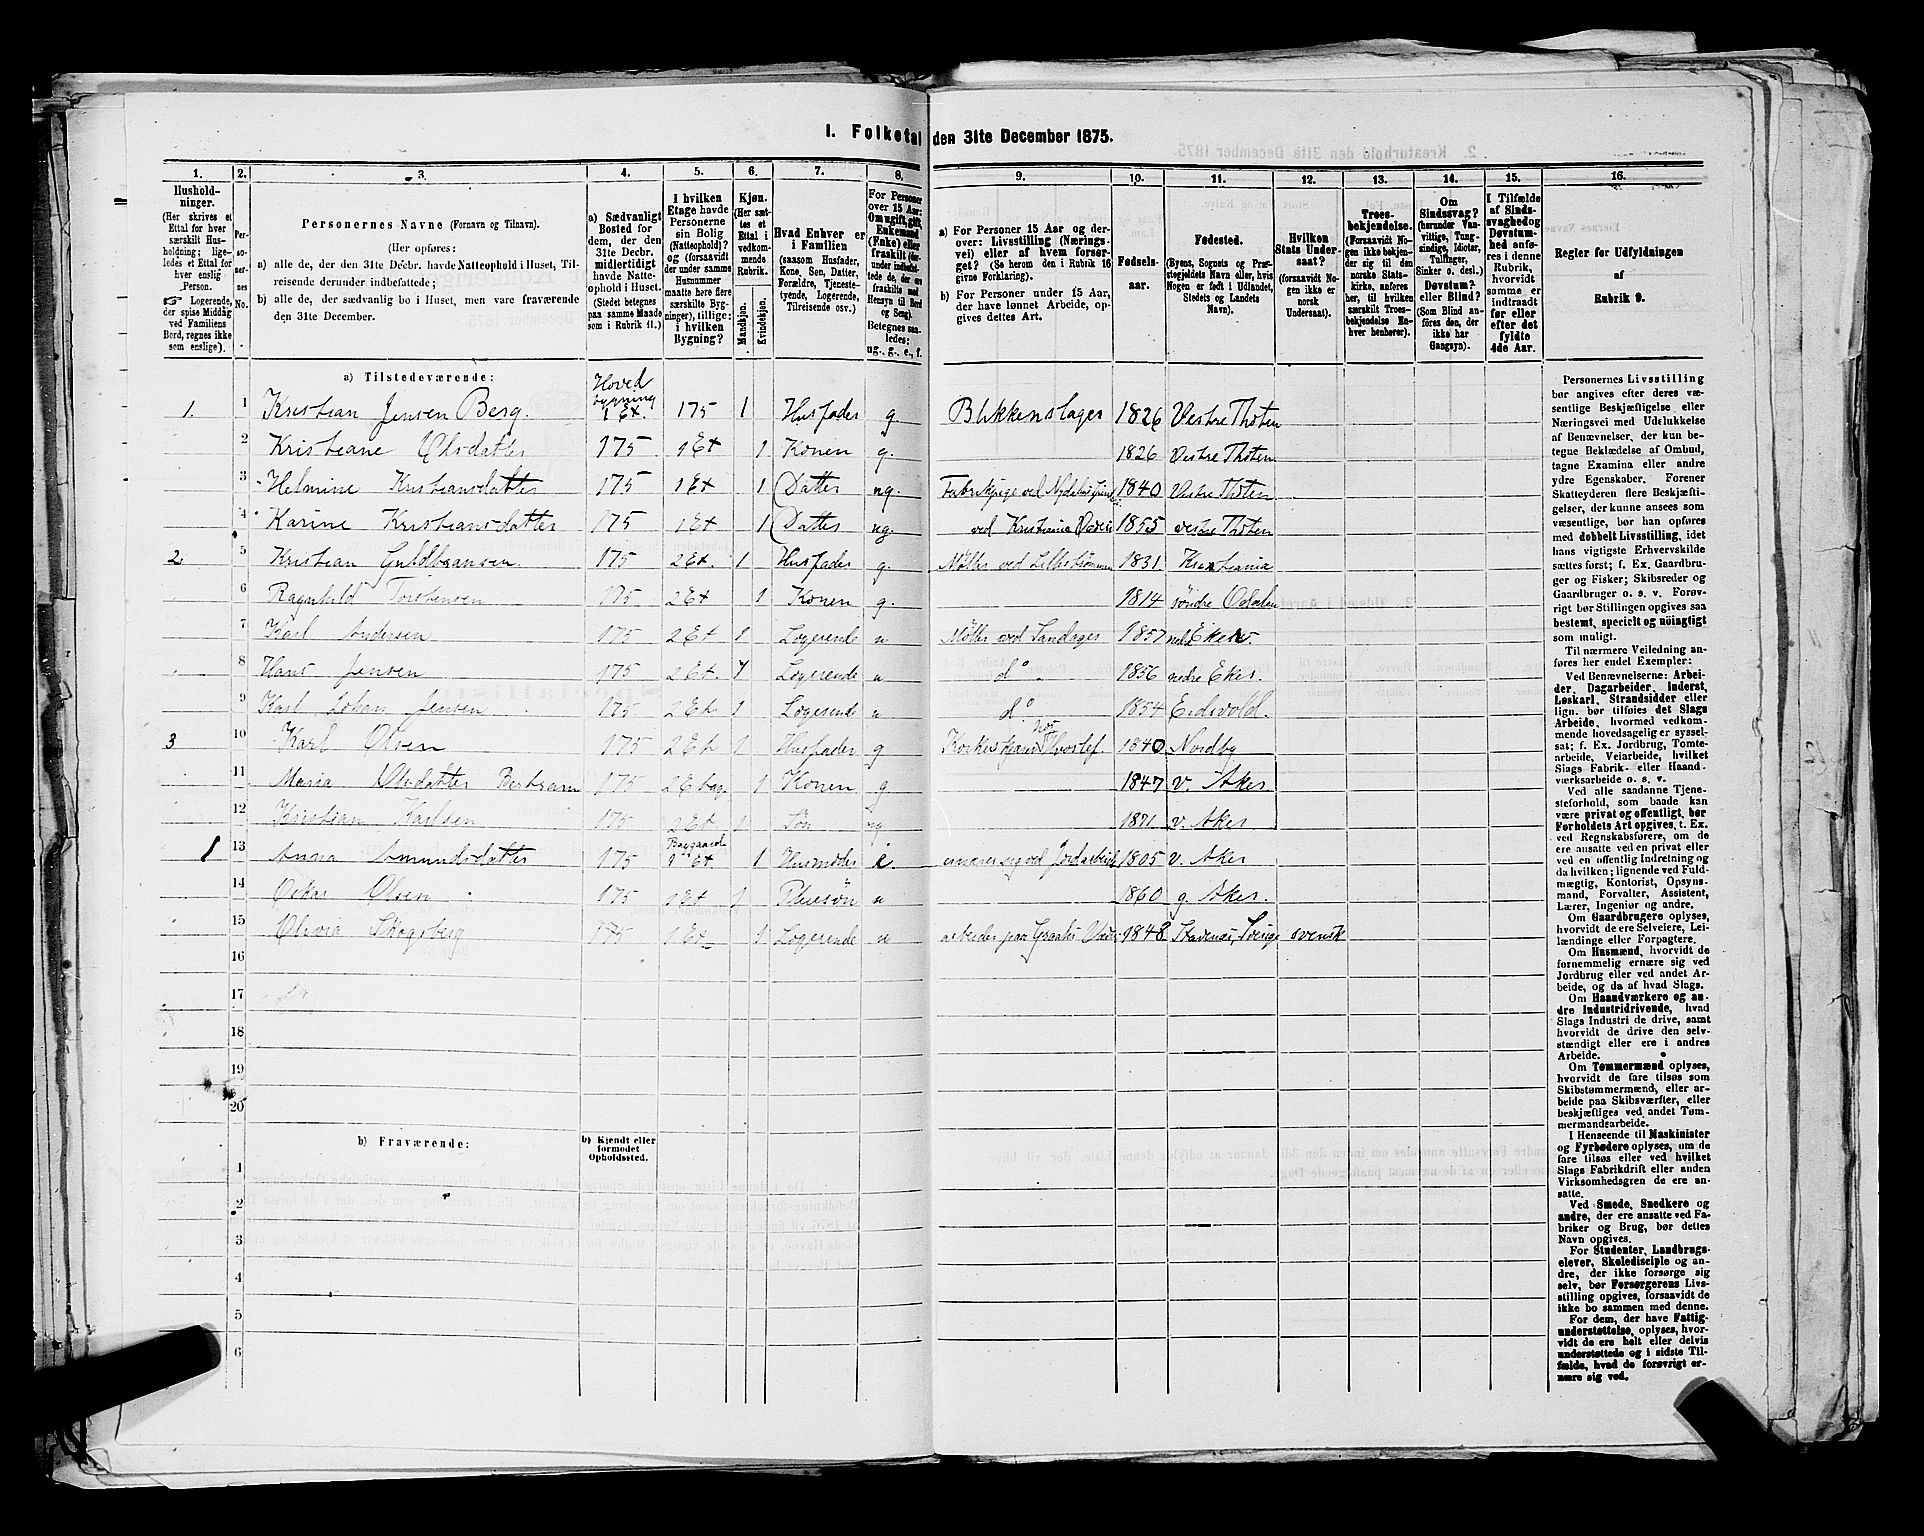 I. Folketal den 31te December 1875.
1.
Hushold-
ninger.
(Her skrives et
Ettal for hver
særskilt Hus-
holdning; lige-
ledes et Ettal for
hver enslig
Person.
☞ Logerende,
der spise Middag
ved Familiens
Bord, regnes ikke
som enslige).
2.
Per-
so-
ner-
nes
No.
3.
Personernes Navne (Fornavn og Tilnavn).
(Her opføres:
a) alle de, der den 31te Decbr. havde Natteophold i Huset, Til-
reisende derunder indbefattede;
b) alle de, der sædvanlig bo i Huset, men vare fraværende
den 31te December.
4.
a) Sædvanligt
Bosted for
dem, der den
31te Decbr.
midlertidigt
havde Natte-
ophold i Huset.
(Stedet betegnes
paa samme Maade
som i Rubrik 11.)
5.
I hvilken
Etage havde
Personerne
sin Bolig
(Natteophold)?
og (forsaavidt
der under samme
Husnummer
maatte høre flere
særskilte Byg-
ninger), tillige:
i hvilken
Bygning?
6.
Kjøn.
(Her sæt-
tes et
Ettal i
vedkom-
mende
Rubrik.
Mandkjøn.
Kvindekjøn.
7.
Hvad Enhver er
i Familien
(saasom Husfader,
Kone, Søn, Datter,
Forældre, Tjeneste-
tyende, Logerende,
Tilreisende osv.)
8.
For Personer
over 15 Aar:
Om ugift, gift,
Enkemand
(Enke) eller
fraskilt
Betegnes saa-
ledes:
ug., g., e., f.
9.
a) For Personer 15 Aar og der-
over: Livsstilling (Nærings-
vei) eller af hvem forsør-
get? (Se herom den i Rubrik 16
givne Forklaring).
b) For Personer under 15 Aar,
der have lønnet Arbeide, op-
gives dettes Art.
10.
Fødsels-
aar.
11.
Fødested.
(Byens, Sognets og Præ-
stegjeldets Navn eller, hvis
Nogen er født i Udlandet,
Stedets og Landets
Navn).
12.
Hvilken
Stats Under-
saat?
(forsaavidt No-
gen ikke er
norsk
Undersaat).
13.
Troes-
bekjendelse.
(Forsaavidt No-
gen ikke bekjen-
der sig til den
norske Stats-
kirke, anføres
her, til hvilken
særskilt Troes-
bekjendelse En-
hver henhører).
14.
Om
Sindssvag?
(herunder Van-
vittige, Tung-
sindige, Idioter,
Tullinger,
Sinker o. desl.)
Døvstum?
eller Blind?
(Som Blind an-
føres den, der
ikke har
Gangsyn).
15.
I Tilfælde
af Sinds-
svaghed og
Døvstum-
hed anfø-
res i denne
Rubrik,
hvorvidt
samme er
indtraadt
før eller
efter det
fyldte
4de Aar.
16.
Regler for Udfyldningen
af
Rubrik 9.
a) Tilstedeværende:
1. 1 Kristian Jensen Berg. Hoved bygning 1 Et. 175 1 Husfader g. Blikkenslager 1826 Vestre Thoten
2 Kristiane Olsdatter 175 1 Et 1 Konen g. 1826 Vestre Thoten
3 Helmine Kristiansdatter 175 1 Et 1 Datter ug. Fabrikpige ved 1840 Vestre Thoten
4 Karine Kristiansdatter 175 1 Et 1 Datter ug. ved Kristiania 1855 vestre Thoten
2 5 Kristian Guldbransen 175 2 Et. 1 Husfader g. Møller ved Lillestrømmen 1831 Kristiania
6 Ragnhild Torstensen 175 2 Et 1 Konen g. 1814 søndre Odalen
7 Karl Andersen 175 2 Et 1 Logerende u Møller ved Sandager 1857 Eker
8 Hans Jensen 175 2 Et. 1 Logerende u do 1856 nedre Eker.
9 Karl Johan Jensen 175 2 Et 1 Logerende u do 1854 Eidsvold.
3 10 Karl Olsen 175 2 Et 1 Husfader g 1840 Nordby
11 Maria Olsdatter 175 2 Etag 1 Konen g 1847 v. Aker
12 Kristian Karlsen 175 2 Et 1 Søn ug 1871 v. Aker
1 13 Anna Amundsdatter 175 Baggaard 1 Et 1 Husmoder e. ernærer sig ved Jordarbeide 1805 v. Aker
14 Oskar Olsen 175 1 Et 1 Pleiesøn u 1860 g. Aker.
15 Olivia Skogsberg 175 1 Et 1 Logerende u arbeider paa Graahs 1848 Stavenæs, Sverige svensk
16
17
18
19
20
b) Fraværende:
b) Kjendt eller
formodet
Opholdssted.
1
2
3
4
5
6
Personernes Livsstilling
bør angives efter deres væ-
sentlige Beskjæftigelse eller
Næringsvei med Udelukkelse
af Benævnelser, der kun be-
tegne Beklædelse af Ombud,
tagne Examina eller andre
ydre Egenskaber. Forener
Skatteyderen flere Beskjæfti-
gelser, der kunne ansees som
væsentlige, bør han opføres
med dobbelt Livsstilling, idet
hans vigtigste Erhvervskilde
sættes først; f. Ex. Gaardbru-
ger og Fisker; Skibsreder og
Gaardbruger o. s. v. Forøv-
rigt bør Stillingen opgives saa
bestemt, specielt og nøiagtigt
som muligt.
Til nærmere Veiledning an-
føres her endel Exempler:
Ved Benævnelserne: Arbei-
der, Dagarbeider, Inderst,
Løskarl, Strandsidder eller
lign. bør tilføies det Slags
Arbeide, hvormed vedkom-
mende hovedsagelig er syssel-
sat; f. Ex. Jordbrug, Tomte-
arbeide, Veiarbeide, hvilket
Slags Fabrik- eller Haand-
værksarbeide o. s. v.
Ved alle saadanne Tjene-
steforhold, som baade kan
være privat og offentligt, bør
Forholdets Art opgives, t. Ex.
ved Regnskabsførere, om de
ere ansatte ved en privat eller
ved en offentlig Indretning og
da hvilken; lignende ved Fuld-
mægtig, Kontorist, Opsyns-
mand, Forvalter, Assistent,
Lærer, Ingeniør og andre.
Om Gaardbrugere oplyses,
hvorvidt de ere Selveiere, Lei-
lændinge eller Forpagtere.
Om Husmænd, hvorvidt de
fornemmelig ernære sig ved
Jordbrug eller ved andet Ar-
beide, og da af hvad Slags.
Om Haandværkere og an-
dre Industridrivende, hvad
Slags Industri de drive, samt
hvorvidt de drive den selv-
stændigt eller ere i andres
Arbeide.
Om Tømmermænd oplyses,
hvorvidt de fare tilsøs som
Skibstømmermænd, eller ar-
beide paa Skibsværfter, eller
beskjæftiges ved andet Tøm-
mermandsarbeide.
I Henseende til Maskinister
og Fyrbødere oplyses, om de
fare tilsøs eller ved hvilket
Slags Fabrikdrift eller anden
Virksomhedsgren de ere an-
satte.
Ved Smede, Snedkere og
andre, der ere ansatte ved Fa-
briker og Brug, bør dettes
Navn opgives.
For Studenter, Landbrugs-
elever, Skoledisciple og an-
dre, der ikke forsørge sig
selv, bør Forsørgerens Livs-
stilling opgives, forsaavidt de
ikke bo sammen med denne.
For dem, der have Fattig-
understøttelse, oplyses, hvor-
vidt de ere helt eller delvis
understøttede og i sidste Til-
fælde, hvad de forøvrigt er-
nære sig ved.